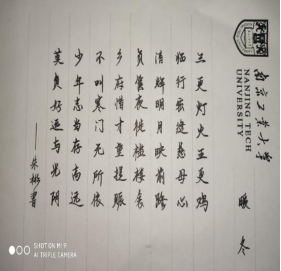 南京工业大学
NANJING TECH
UNIVERSITY
暖冬
三更灯火五更鸡
临行密缝慈母心
清辉明月映前路
夜楼舍
乡府惜才重提赈
不叫寒门无所依
少年志当存高远
莫负好运与光阴
——朱彬書
SHOT ON MI 9
AI TRIPLE CAMERA